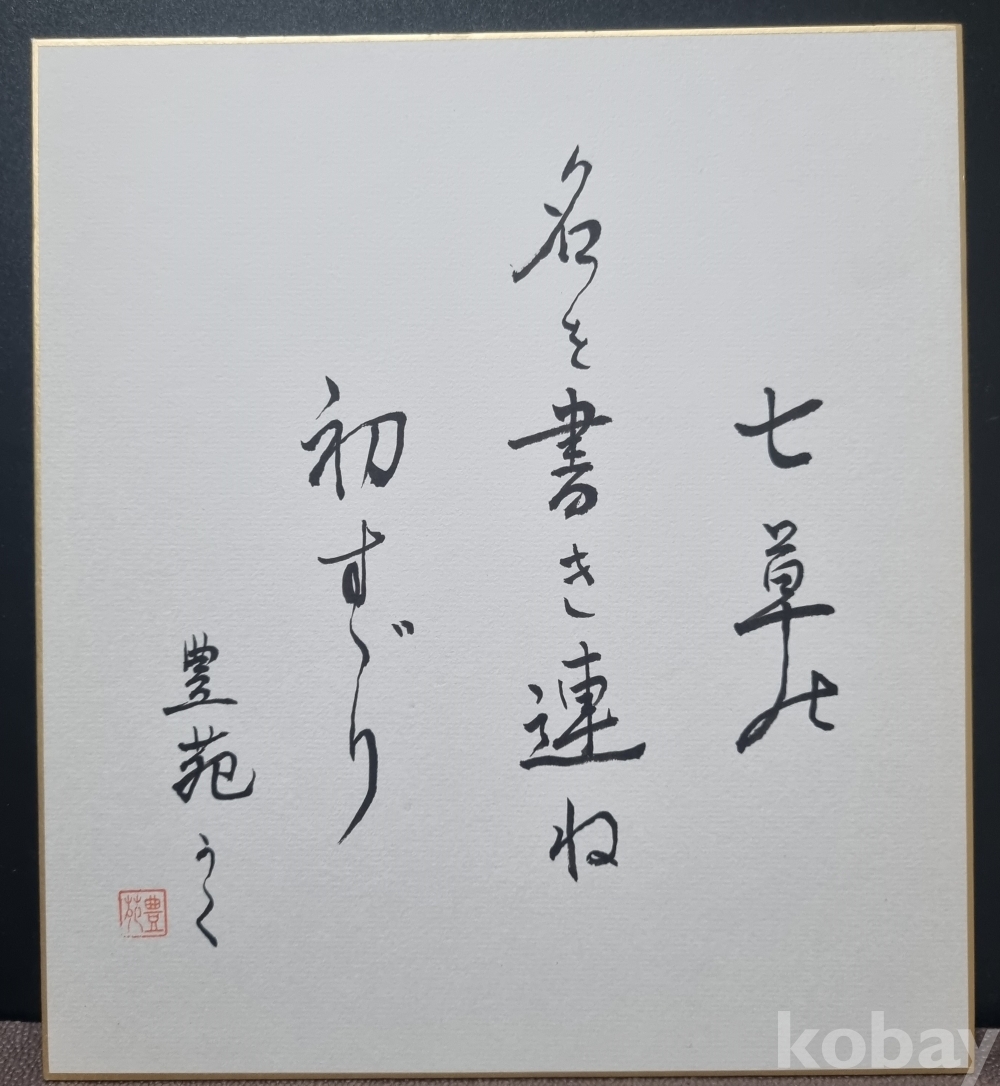 七草の
名を書き連ね
初すゞり
豊苑かく
豊苑
kobay